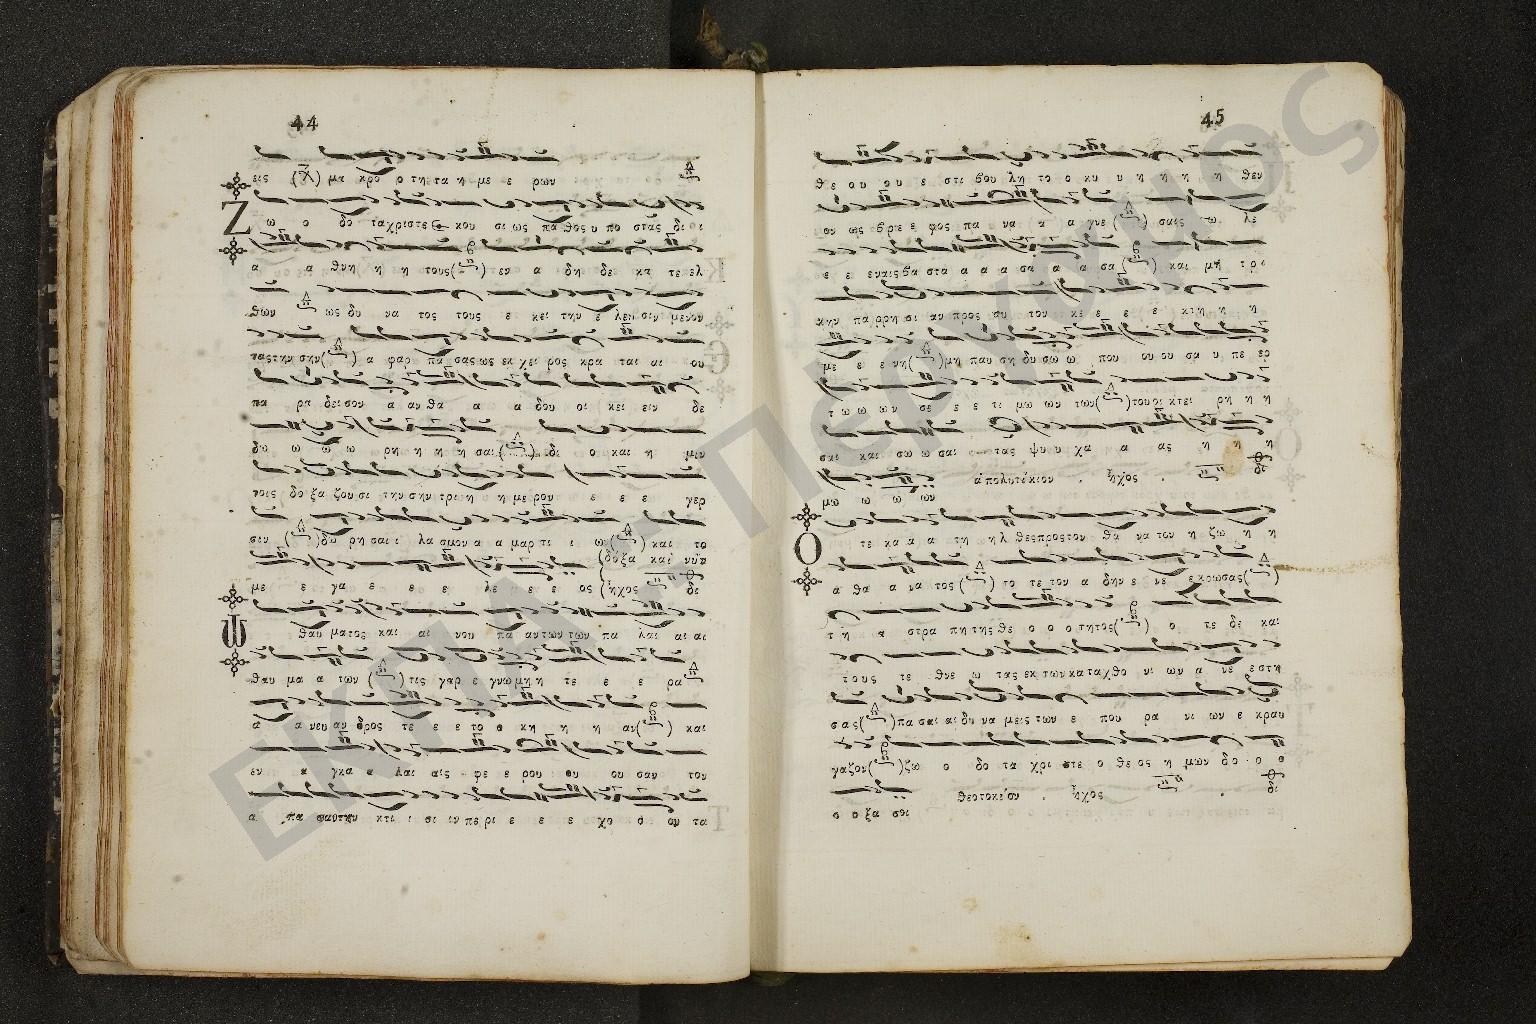 44
εις (χ) μα κρο ο τη τα η με ε ρων
Ζ ω ο δο τα χριστε ε κου σι ως πα θος υ πο στας δι ι
α α θνη η η τους εν α δη δε κα τε ελ
θων ως δυ να τος τους ε κει την ε λευ σιν μενον
τας την σην α φαρ πα σας ως εκ χει ρος κρα ται αι ου
πα ρα δεισον α αν θα α α δου οι κει ειν δε
δω ω ω ω ρη η η η σαι δι ο και η μιν
τοις δο ξα ζου σι την σην τρι η υ η με ρον ε ε ε γερ
σιν δω ρη σαι ι λα σμον α α μαρ τι ι ω και το
με ε γα ε ε ε λε με ε ος
δοξα και νυν
ηχος
Ω θαυ ματος και αι νου πα αν των των πα λαι αι αι
θαυ μα α των τις γαρ ε γνω μη η τε ε ε ρα
α α νευ αν δρος τε ε ε το ο κη η η αν και
εν α γκα α λαι αις φε ε ρου ου ου σαν τον
α πα σαν την κτι ι σι ιν πε ρι ε ε ε χο ο ον τα
45
θε ου ου ε στι βου λη το ο κυ υ η η η η θεν
ον ως βρε ε φος πα να α α γνε σαις ω λε
ε ε εναις βα στα α α α σα α α σα και μη τρι
κην πα ρρη σι αν προς αυ τον κε ε ε ε κτη η η
με ε ε νη μη παυ ση δυ σω ω που ου ου σα υ πε ερ
τω ω ων σε ε ε τι μω ων των του οι κτει ρη η η
σαι και σω ω σαι τας ψυ υ χα α ας η η η
μω ω ω ων
ἀπολυτίκιον . ἦχος .
Ο τε κα α α τη ηλ θες προς τον θα να τον η ζω η η
α θα α να τος το τε τον α δην ε νε ε κρωσας
τη α στρα πη της θε ο ο ο τητος ο τε δε και
τους τε θνε ω τας εκ των κατα χθο νι ων α νε ε στη
σας πα σαι αι δυ να μεις των ε που ρα νι ων ε κραυ
γαζον ζω ο δο τα χρι στε ο θε ος η μων δο ο ο
ο ο ξα σοι
θεοτοκίον . ἦχος .